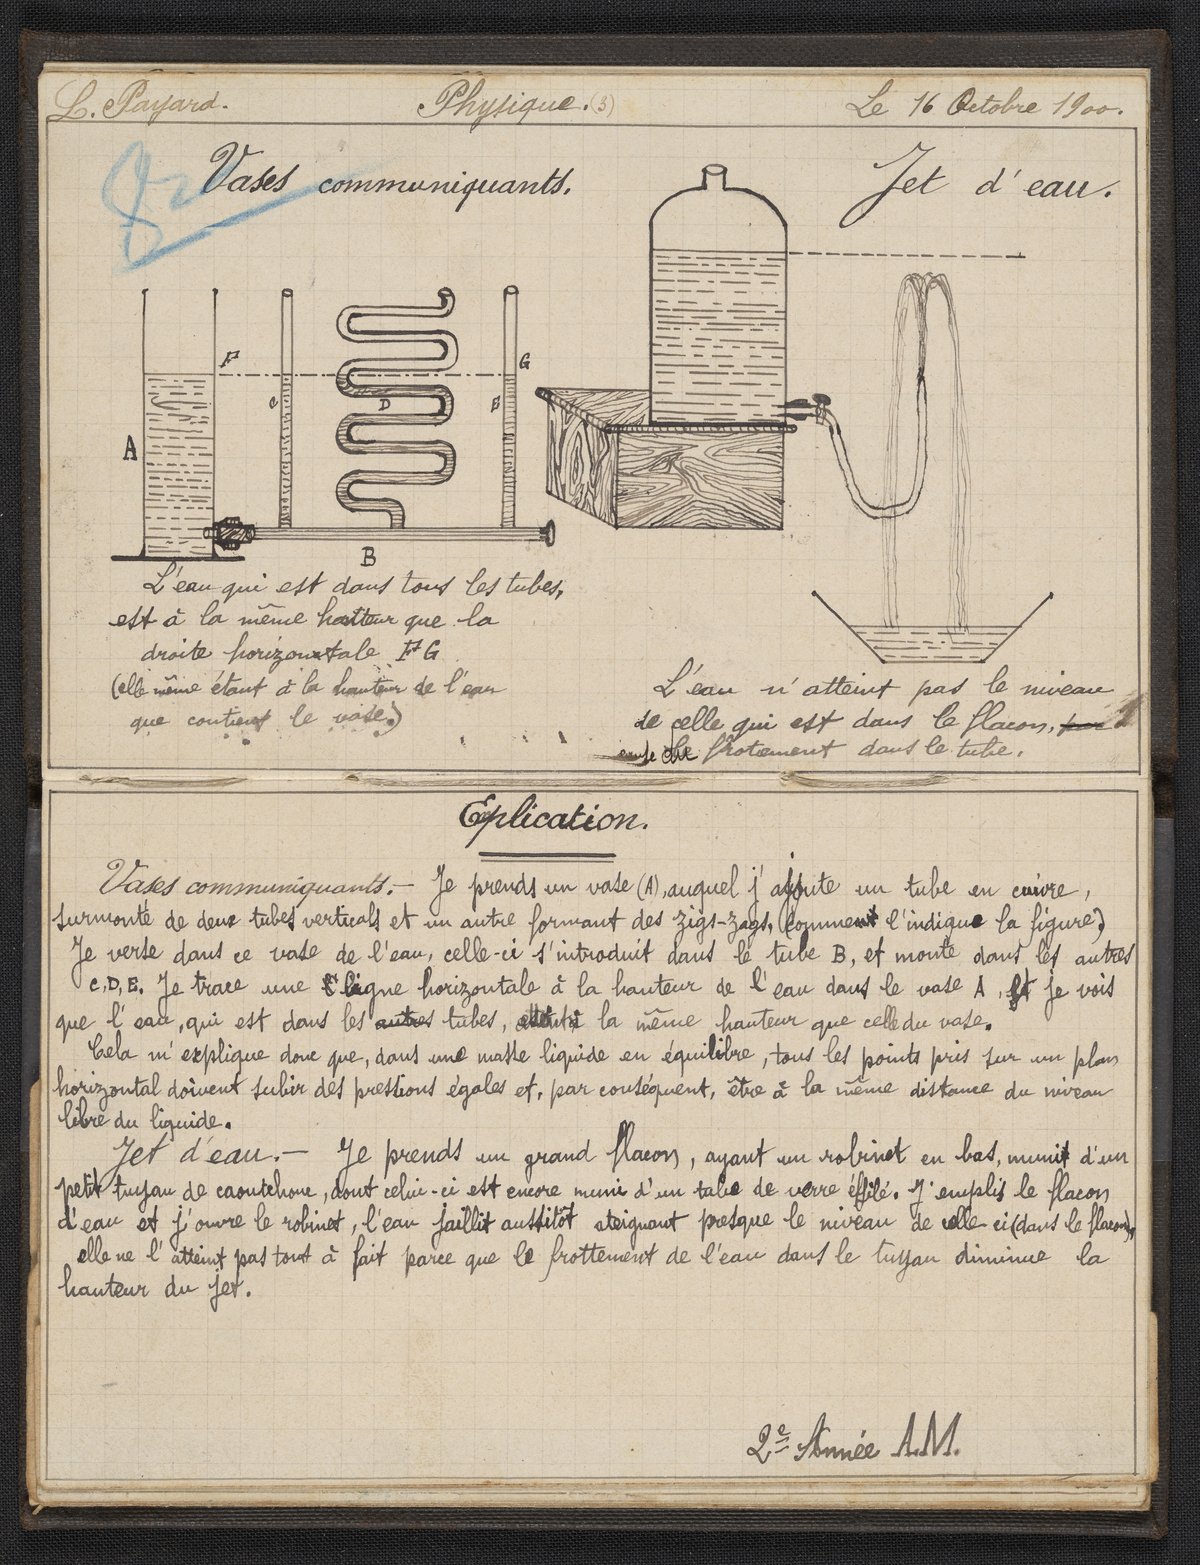 L. Payard. Physique. (3) Le 16 Octobre 1900.
Vases communiquants.
Jet d'eau.
F
G
C
D
E
A
B
L'eau qui est dans tous les tubes,
est à la même hauteur que la
droite horizontale FG
(elle même étant à la hauteur de l'eau
que contient le vase.)
L'eau n'atteint pas le niveau
de celle qui est dans le flacon,
cause de frotement dans le tube.
Eplication.
Vases communiquants.— Je prends un vase (A), auquel j'ajoute un tube en cuivre,
surmonté de deux tubes verticals et un autre formant des zigs-zags, (comment l'indique la figure)
Je verse dans ce vase de l'eau, celle-ci s'introduit dans le tube B, et monte dans les autres
C, D, E. Je trace une ligne horizontale à la hauteur de l'eau dans le vase A, et je vois
que l'eau, qui est dans les autres tubes, la même hauteur que celle du vase.
Cela m'explique donc que, dans une masse liquide en équilibre, tous les points pris sur un plan
horizontal doivent subir des pressions égales et, par conséquent, être à la même distance du niveau
libre du liquide.
Jet d'eau.— Je prends un grand flacon, ayant un robinet en bas, munit d'un
petit tuyau de caoutchouc, dont celui-ci est encore muni d'un tube de verre éffilé. J'emplis le flacon
d'eau et j'ouvre le robinet, l'eau jaillit aussitôt ateignant presque le niveau de celle ci (dans le flacon),
elle ne l'atteint pas tout à fait parce que le frottement de l'eau dans le tuyau diminue la
hauteur du jet.
2e Année A.M.